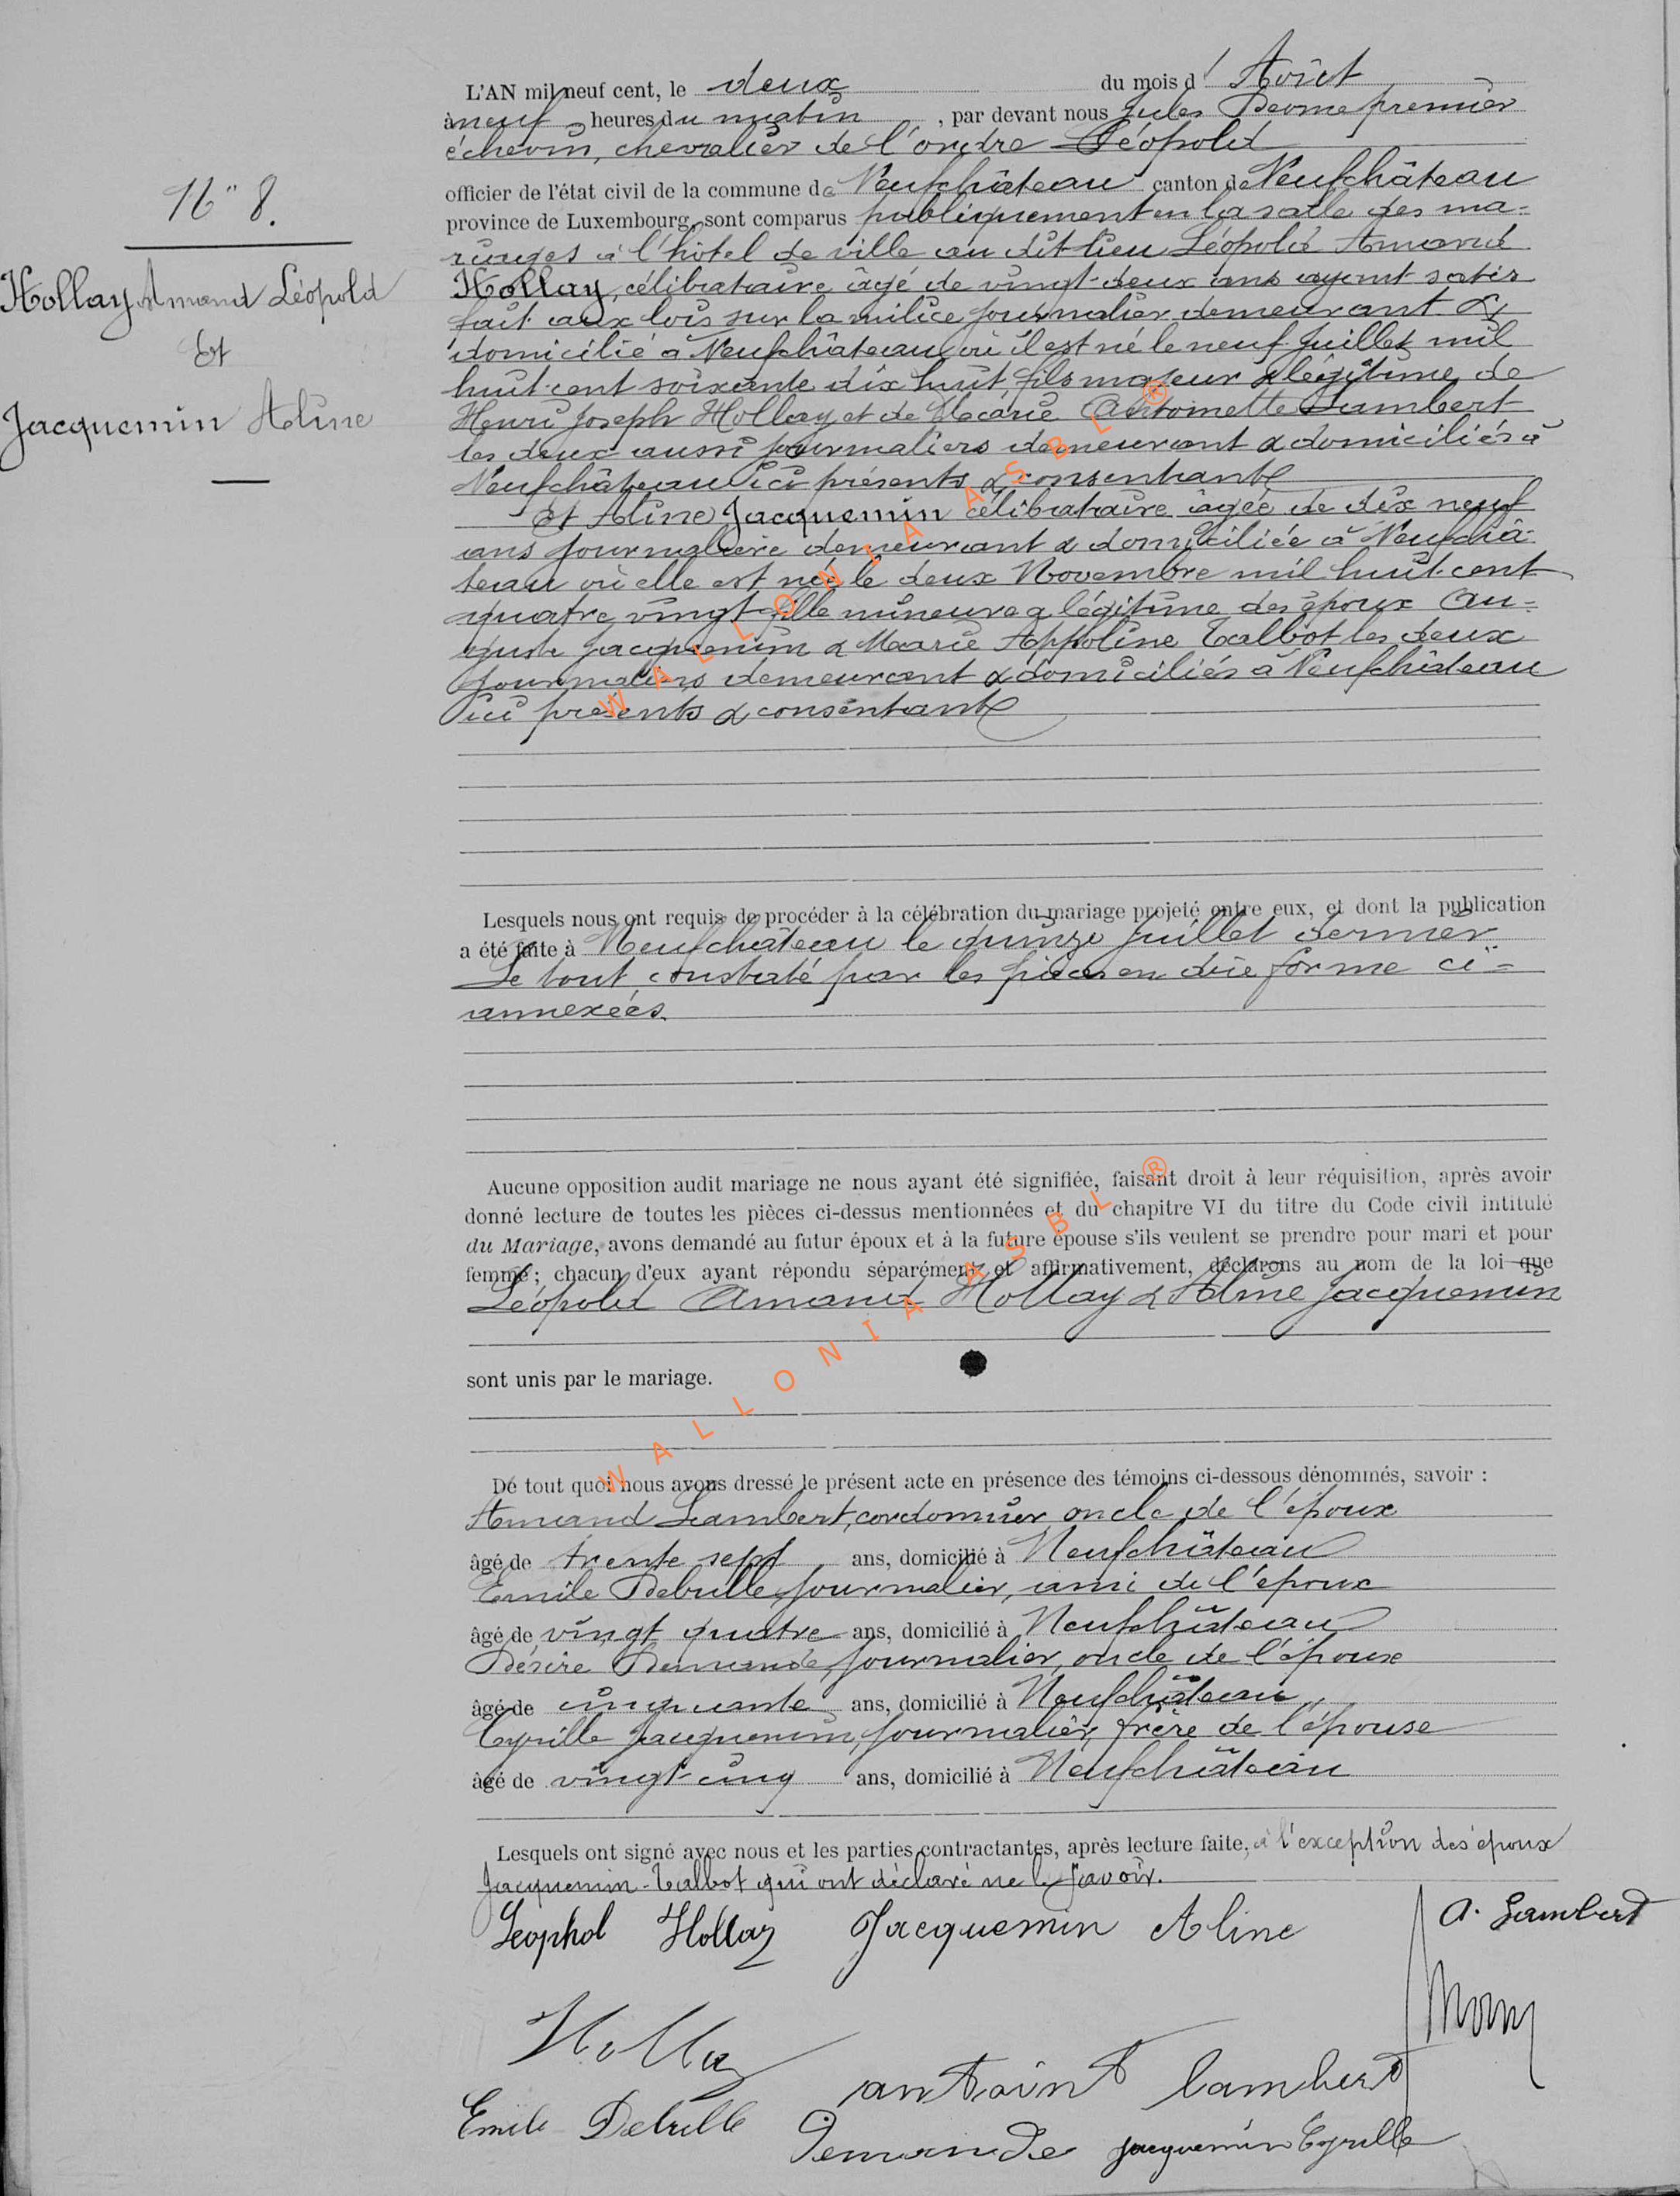 N° 8.
Hollay Amand Léopold
Et
Jacquemin Aline
L'AN mil neuf cent, le deux du mois d' Août
à neuf heures du matin, par devant nous Jules premier
échevin, chevalier de l'ordre Léopold
officier de l'état civil de la commune de Neufchâteau canton de Neufchâteau
province de Luxembourg, sont comparus publiquement en la salle des ma-
riages à l'hôtel de ville au dit lieu Léopold Amand
Hollay, célibataire âgé de vingt-deux ans ayant satis
fait aux lois sur la milice journalier demeurant &
domicilié à Neufchâteau où il est né le neuf Juillet mil
huit cent soixante dix huit, fils majeur & légitime de
Henri Joseph Hollay et de Marie Antoinette Lambert
les deux aussi journaliers demeurant & domiciliés à
Neufchâteau ici présents & consentants
Et Aline Jacquemin célibataire âgée de dix neuf
ans journalière demeurant & domiciliée à Neufchâ-
teau où elle est née le deux Novembre mil huit cent
quatre vingt fille mineure & légitime des époux Au-
guste Jacquemin & Marie Appoline Talbot les deux
journaliers demeurant & domiciliés à Neufchâteau
ici présents & consentants
Lesquels nous ont requis de procéder à la célébration du mariage projeté entre eux, et dont la publication
a été faite à Neufchâteau le quinze Juillet dernier.
Le tout constaté par les pièces en due forme ci-
annexées.
Aucune opposition audit mariage ne nous ayant été signifiée, faisant droit à leur réquisition, après avoir
donné lecture de toutes les pièces ci-dessus mentionnées et du chapitre VI du titre du Code civil intitulé
du Mariage, avons demandé au futur époux et à la future épouse s'ils veulent se prendre pour mari et pour
femme ; chacun d'eux ayant répondu séparément et affirmativement, déclarons au nom de la loi que
Léopold Amand Hollay & Aline Jacquemin
sont unis par le mariage.
De tout quoi nous avons dressé le présent acte en présence des témoins ci-dessous dénommés, savoir :
Amand Lambert, cordonnier, oncle de l'époux
âgé de trente sept ans, domicilié à Neufchâteau
Emile Debulle, journalier, ami de l'époux
âgé de vingt quatre ans, domicilié à Neufchâteau
Désiré Demande, journalier, oncle de l'époux
âgé de cinquante ans, domicilié à Neufchâteau
Cyrille Jacquemin, journalier, frère de l'épouse
âgé de vingt-cinq ans, domicilié à Neufchâteau
Lesquels ont signé avec nous et les parties contractantes, après lecture faite, à l'exception des époux
Jacquemin-Talbot qui ont déclaré ne le savoir.
Leophol Hollay Jacquemin Aline A. Lambert
Hollay
antoint lambert
Emile Debulle Demande jacquemin Cyrille
WALLONIA ASBL ®
WALLONIA ASBL ®